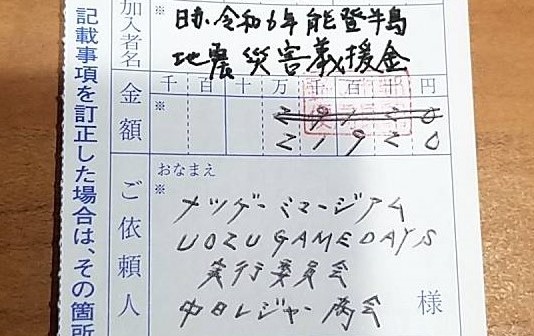 加入者名
※
日赤令和6年能登半島
地震災害義援金
金額
千百十万千百十円
※
29120
21920
おなまえ
※
ご依頼人
メッゲーミュージアム
UOZU GAME DAYS
実行委員会
中日レジャー商会
様
記載事項を訂正した場合は、その箇所